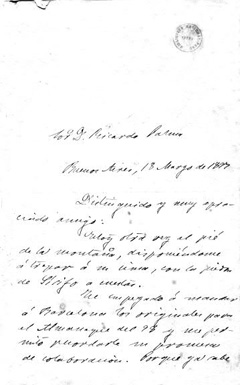 Sor Dn Ricardo Palma
Buenos Aires, 13 Marzo de 1897
Distinguido y muy apre-
ciado amigo:
Estoy otra vez al pié
de la montaña, disponiéndome
á trepar á su cima, con la piedra
de Sísifo a cuestas.
He empezado á mandar
á Barcelona los originales para
el Almanaque del 98 y me per-
mito recordarle su promesa
de colaboración. Porque ya sabe